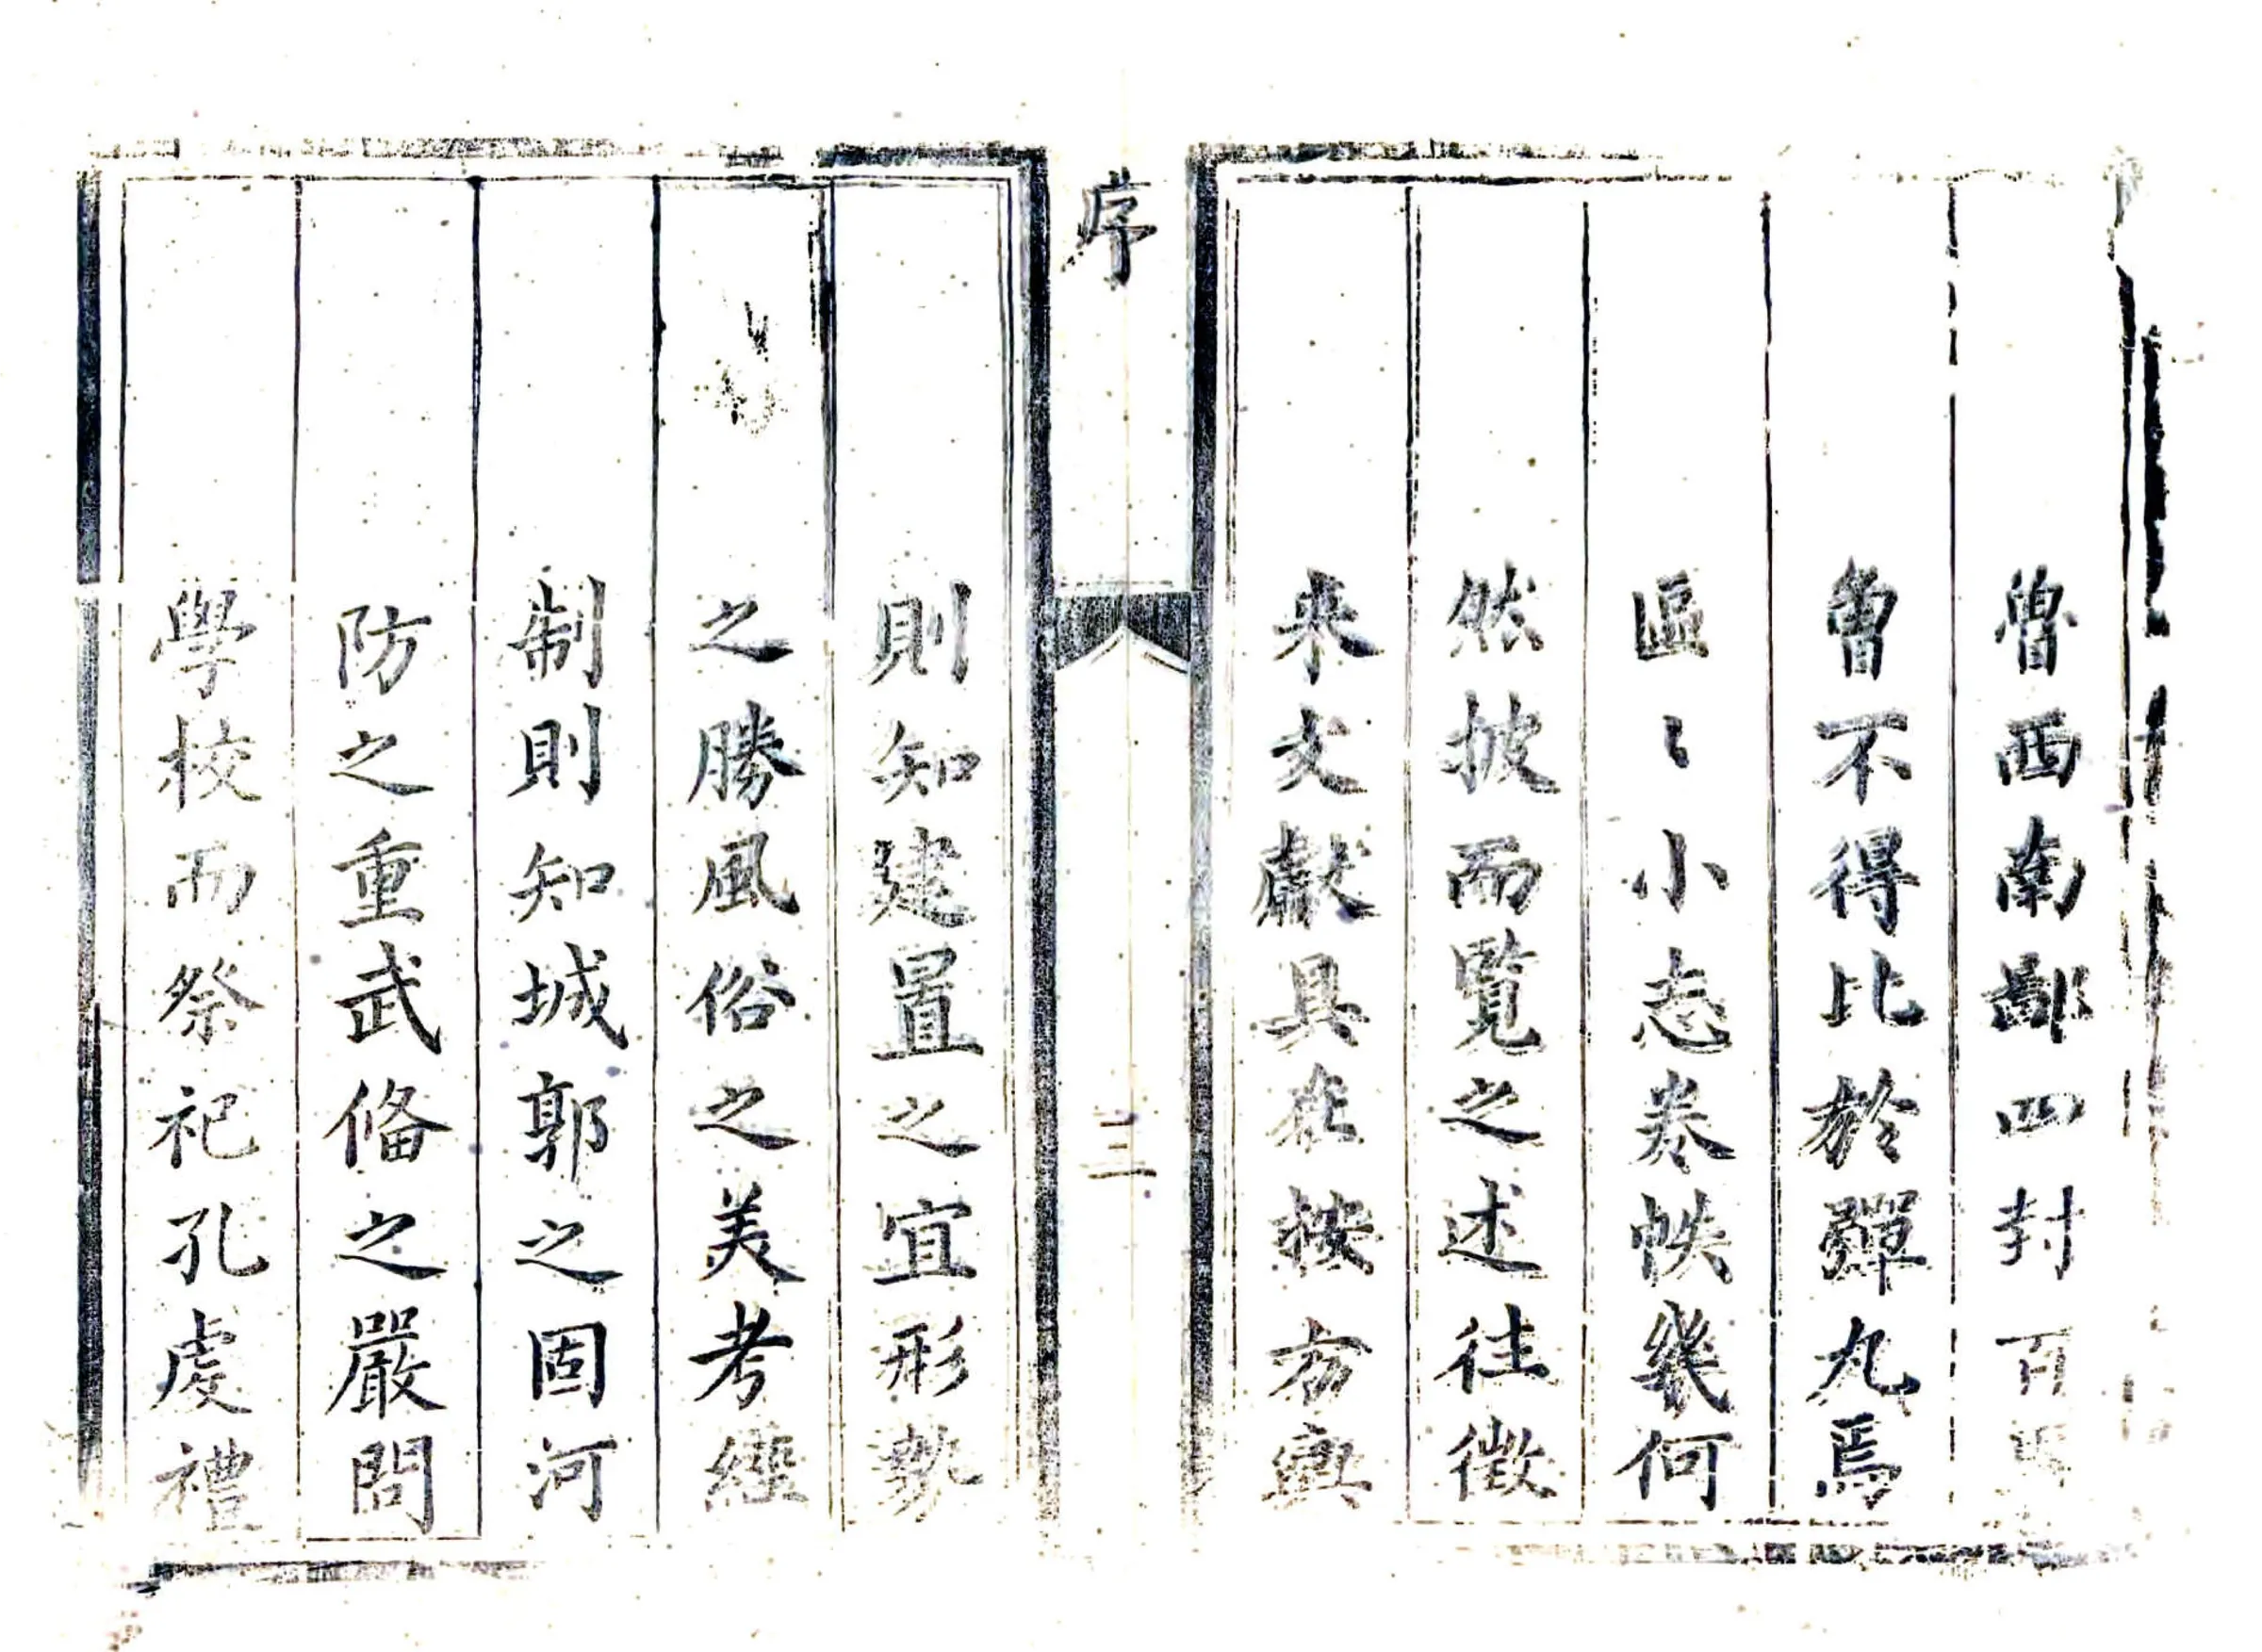 魯西南鄙四封百
魯不得比於彈丸焉
區〻小志卷帙幾何
然披而覧之述往徵
来文獻具在按方輿
序
三
則知建置之宜形勢
之勝風俗之美考經
制則知城郭之固河
防之重武俻之嚴問
學校而祭祀孔虔禮